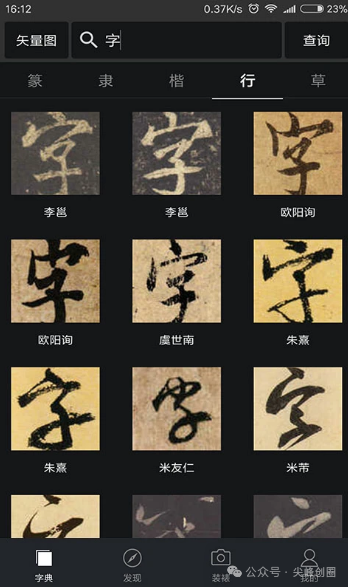 16:12 0.37K/s 23%
矢量图 字 查询
篆 隶 楷 行 草
字 字 字
李邕 李邕 欧阳询
字 字 字
欧阳询 虞世南 朱熹
字 字 字
朱熹 米友仁 米芾
字典 发现 装裱 我的
公众号·尖峰创圈